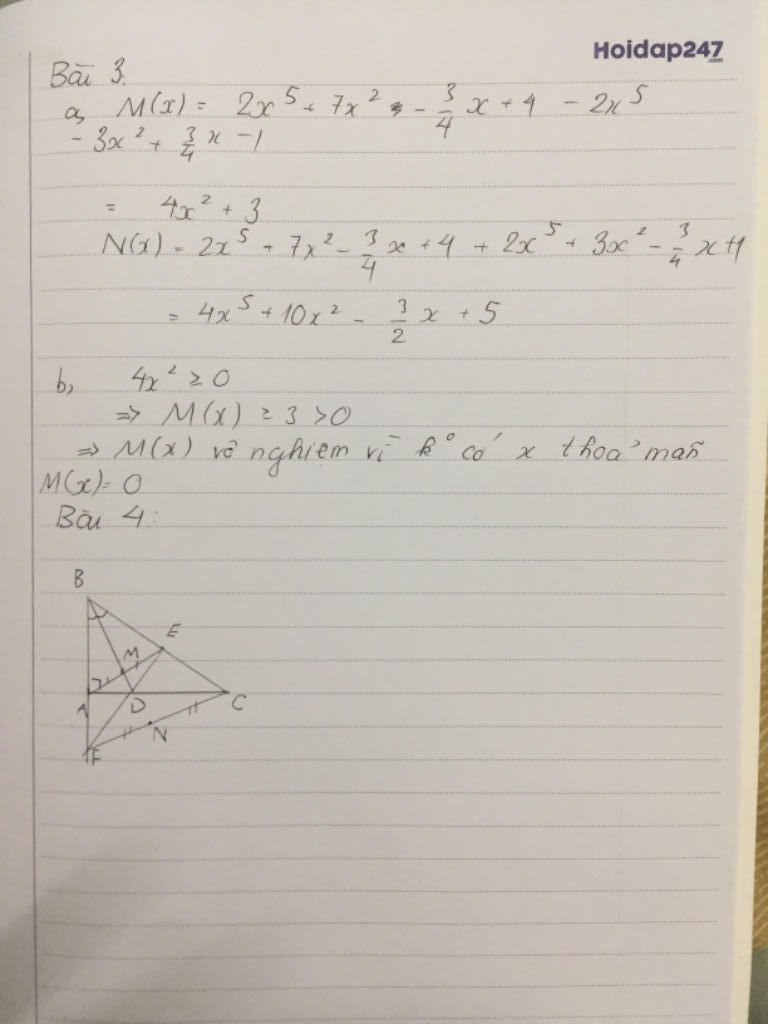 Hoidap247
.com
Bài 3.
a, M(x) = 2x⁵ + 7x² - 3/4 x + 4 - 2x⁵
- 3x² + 3/4 x - 1
= 4x² + 3
N(x) = 2x⁵ + 7x² - 3/4 x + 4 + 2x⁵ + 3x² - 3/4 x + 1
= 4x⁵ + 10x² - 3/2 x + 5
b, 4x² ≥ 0
=> M(x) ≥ 3 > 0
=> M(x) vô nghiệm vì k° có x thoả mãn
M(x) = 0
Bài 4:
B
E
M
A D C
N
F